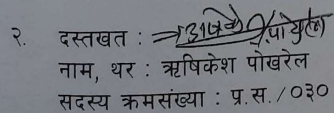 २. दस्तखत :
नाम, थर : ऋषिकेश पोखरेल
सदस्य क्रमसंख्या : प्र.स. /०३०